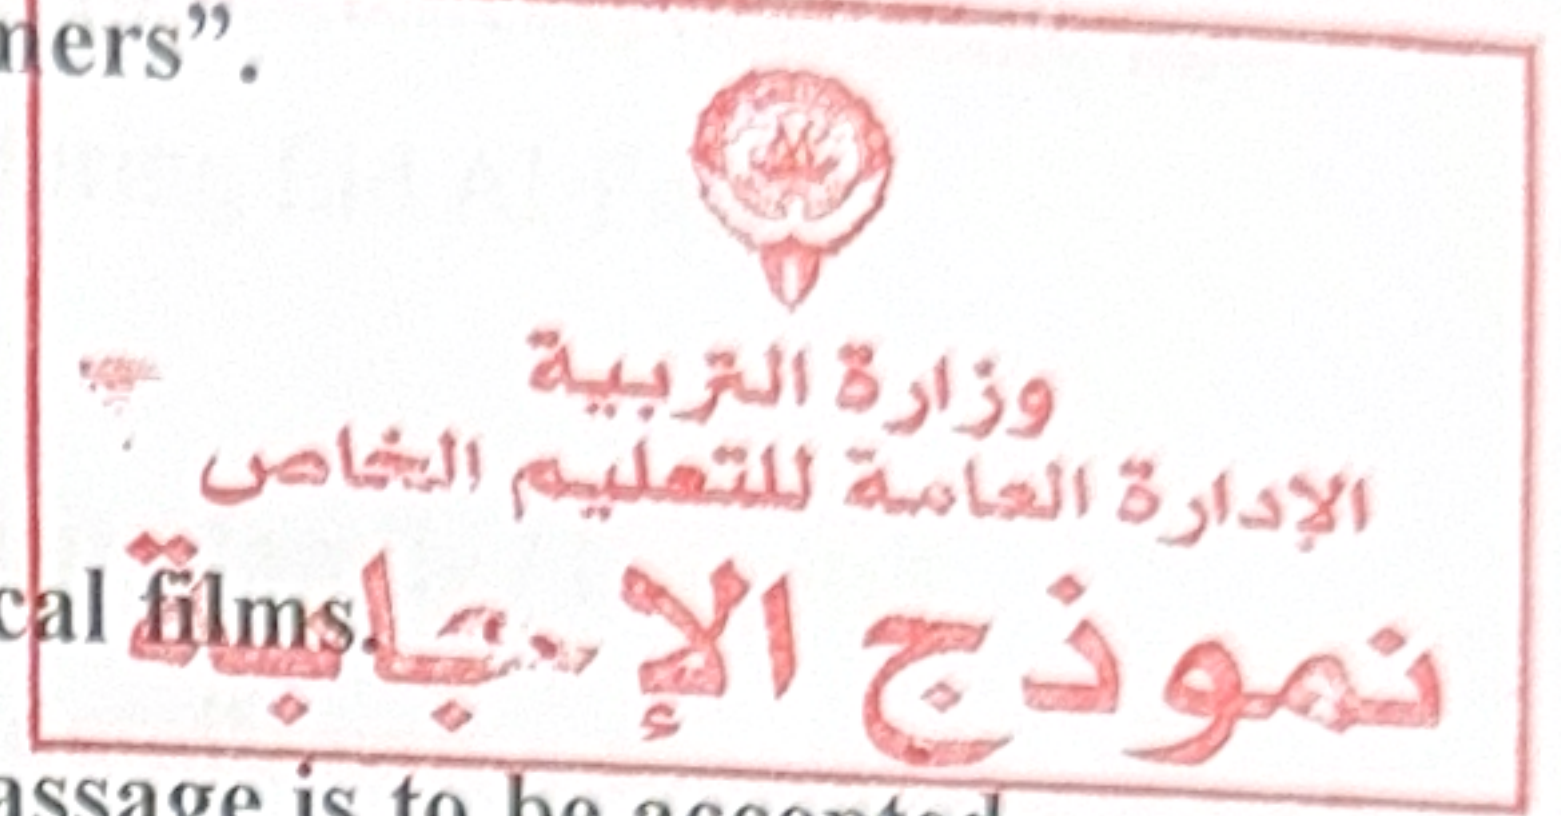 ners”.
وزارة التربية
الإدارة العامة للتعليم الخاص
نموذج الإجابة
cal films.
assage is to be accepted